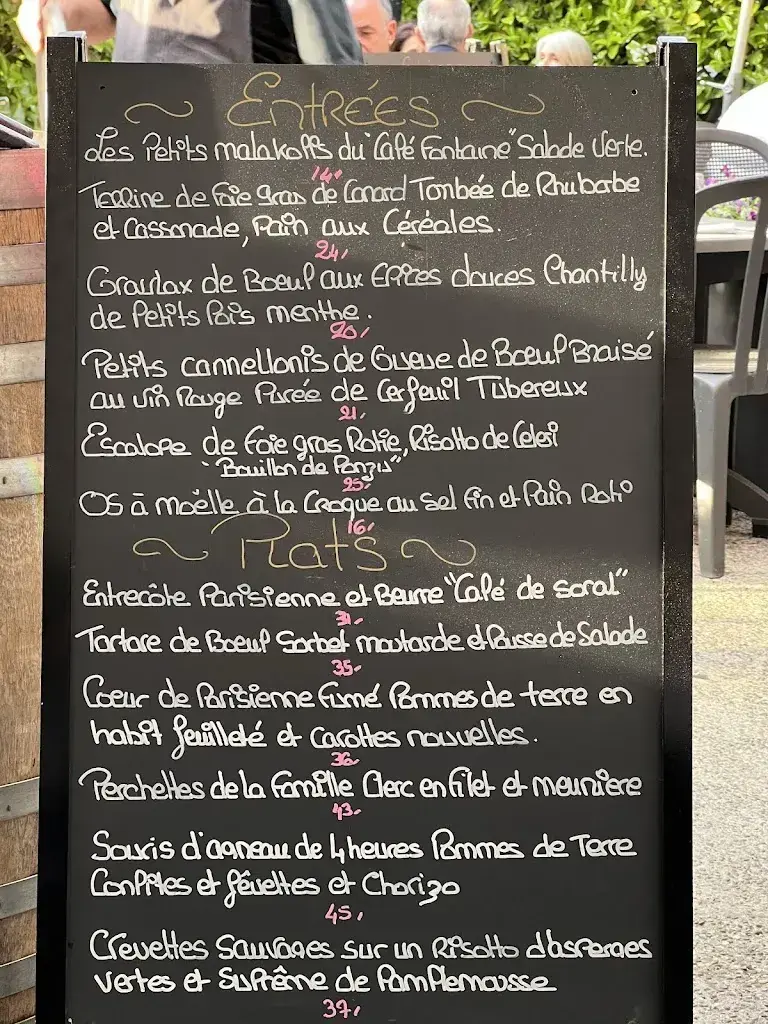 ~ Entrées ~
Les Petits malakoffs du "Café Fontaine" Salade Verte.
14.
Terrine de foie gras de Canard Tombée de Rhubarbe
et Cassonade, Pain aux Céréales.
24,
Gravlax de Boeuf aux Epices douces Chantilly
de Petits Pois menthe.
20,
Petits cannellonis de Queue de Boeuf Braisé
au vin Rouge Purée de Cerfeuil Tubereux
21.
Escalope de foie gras Rotie, Risotto de Celeri
"Bouillon de Ponzu"
25.
Os à moëlle à la Croque au Sel fin et Pain Roti
16,
~ Plats ~
Entrecôte Parisienne et Beurre "Café de soral"
Tartare de Boeuf Sorbet moutarde et Pousse de Salade
35-
Coeur de Parisienne fumé Pommes de terre en
habit feuilleté et carottes nouvelles.
36
Perchettes de la famille Clerc en filet et meunière
43-
Souris d'agneau de 4 heures Pommes de Terre
Confites et févettes et Chorizo
45,
Crevettes Sauvages sur un Risotto d'asperges
vertes et Suprême de Pamplemousse
37,